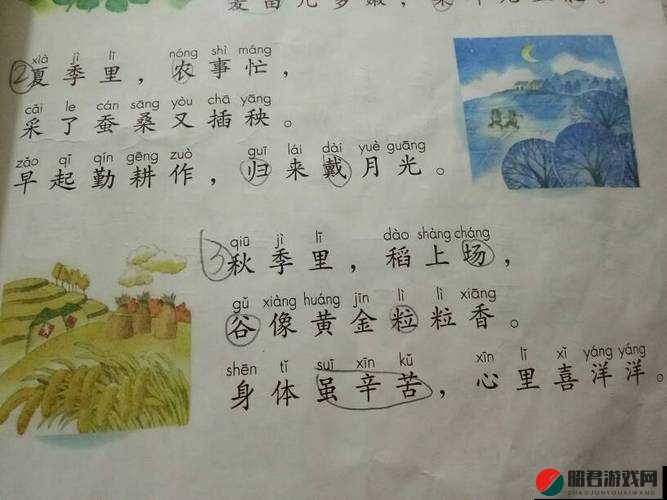 xià jì lǐ nóng shì máng
②夏季里，农事忙，
cǎi le cán sāng yòu chā yāng
采了蚕桑又插秧。
zǎo qǐ qín gēng zuò guī lái dài yuè guāng
早起勤耕作，归来戴月光。
qiū jì lǐ dào shàng cháng
3秋季里，稻上场，
gǔ xiàng huáng jīn lì lì xiāng
谷像黄金粒粒香。
shēn tǐ suī xīn kǔ xīn lǐ xǐ yáng yáng
身体虽辛苦，心里喜洋洋。
昭君游戏网
ZHAOJUNYOUXIWANG